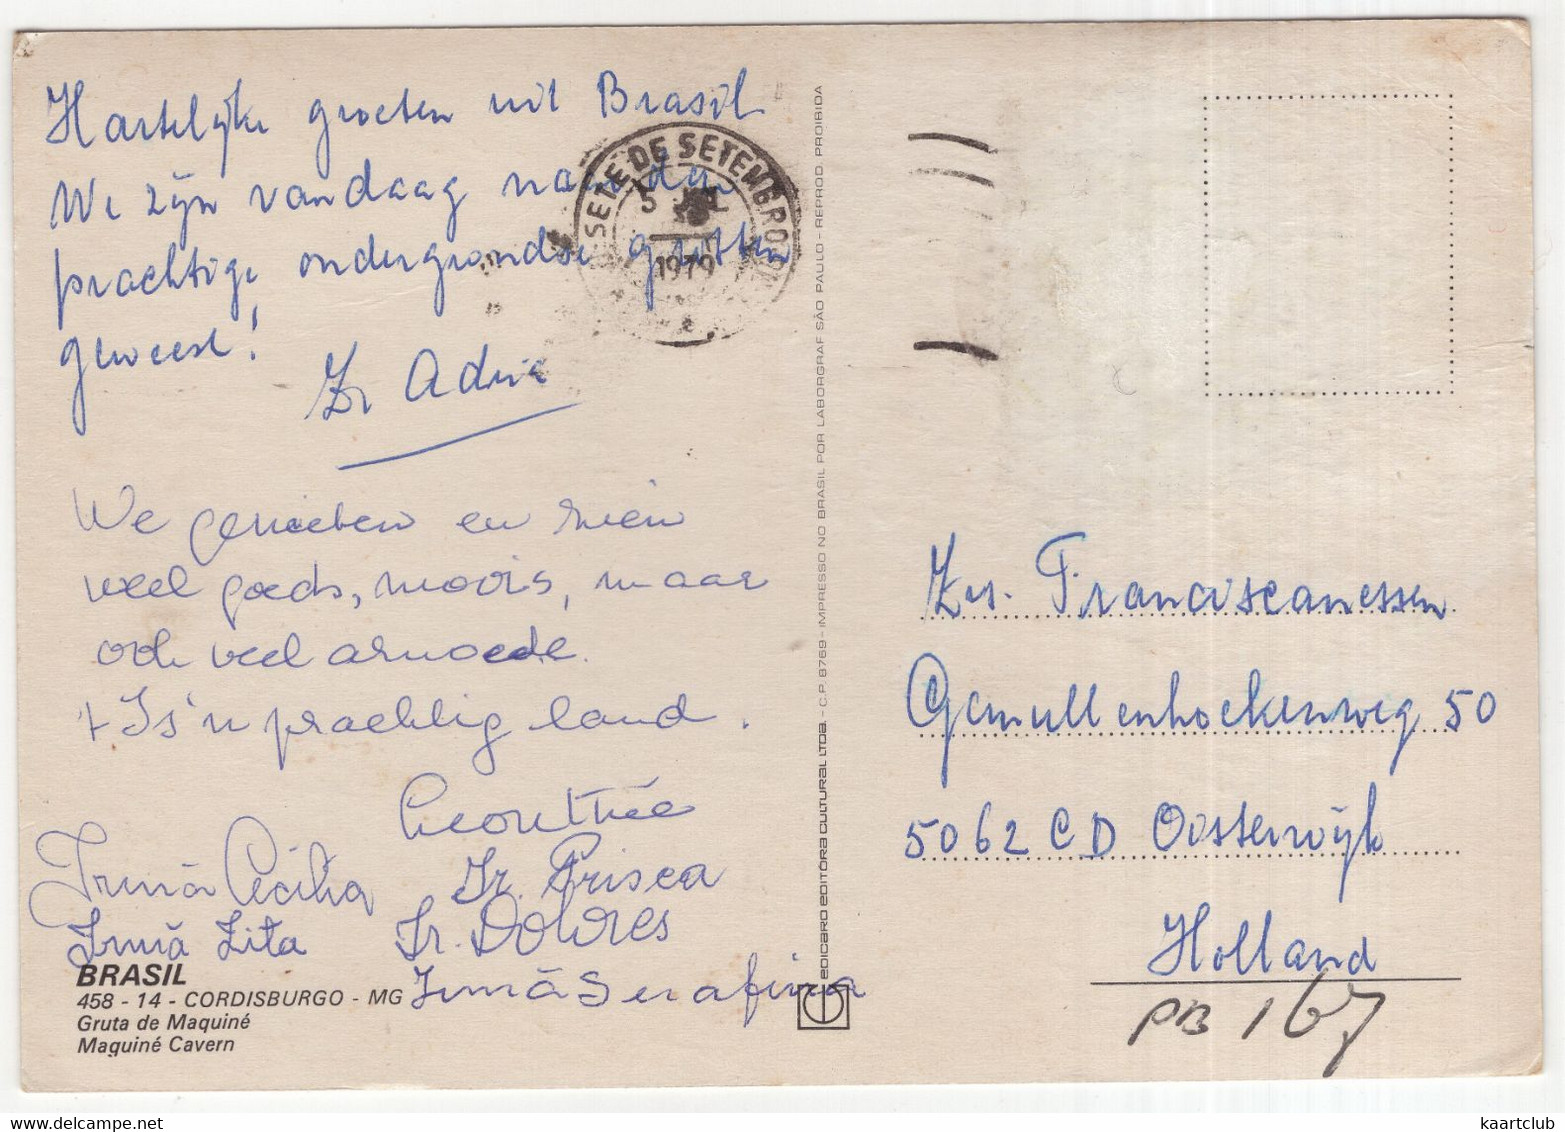 Hartelijke groeten uit Brasil
We zijn vandaag naar den
prachtige ondergrondse grotten
geweest!
Zr Adria
We genieten en zien
veel goeds, moois, maar
ook veel armoede.
+ Is 'n prachtig land.
Irmã Cecilia
Sr. Prisca
Irmã Zita
Sr. Dolores
Irmã Serafina
BRASIL
458 - 14 - CORDISBURGO - MG
Gruta de Maquiné
Maquiné Cavern
SETE DE SETEMBRO
5 JUL
1979
EDICARD EDITÔRA CULTURAL LTDA. - C.P. 8769 - IMPRESSO NO BRASIL POR LABORGRAF SÃO PAULO - REPROD. PROIBIDA
Zrs. Franciscanessen
Gemullenhoekenweg 50
5062 CD Oosterwijk
Holland
PB 167
kaartclub